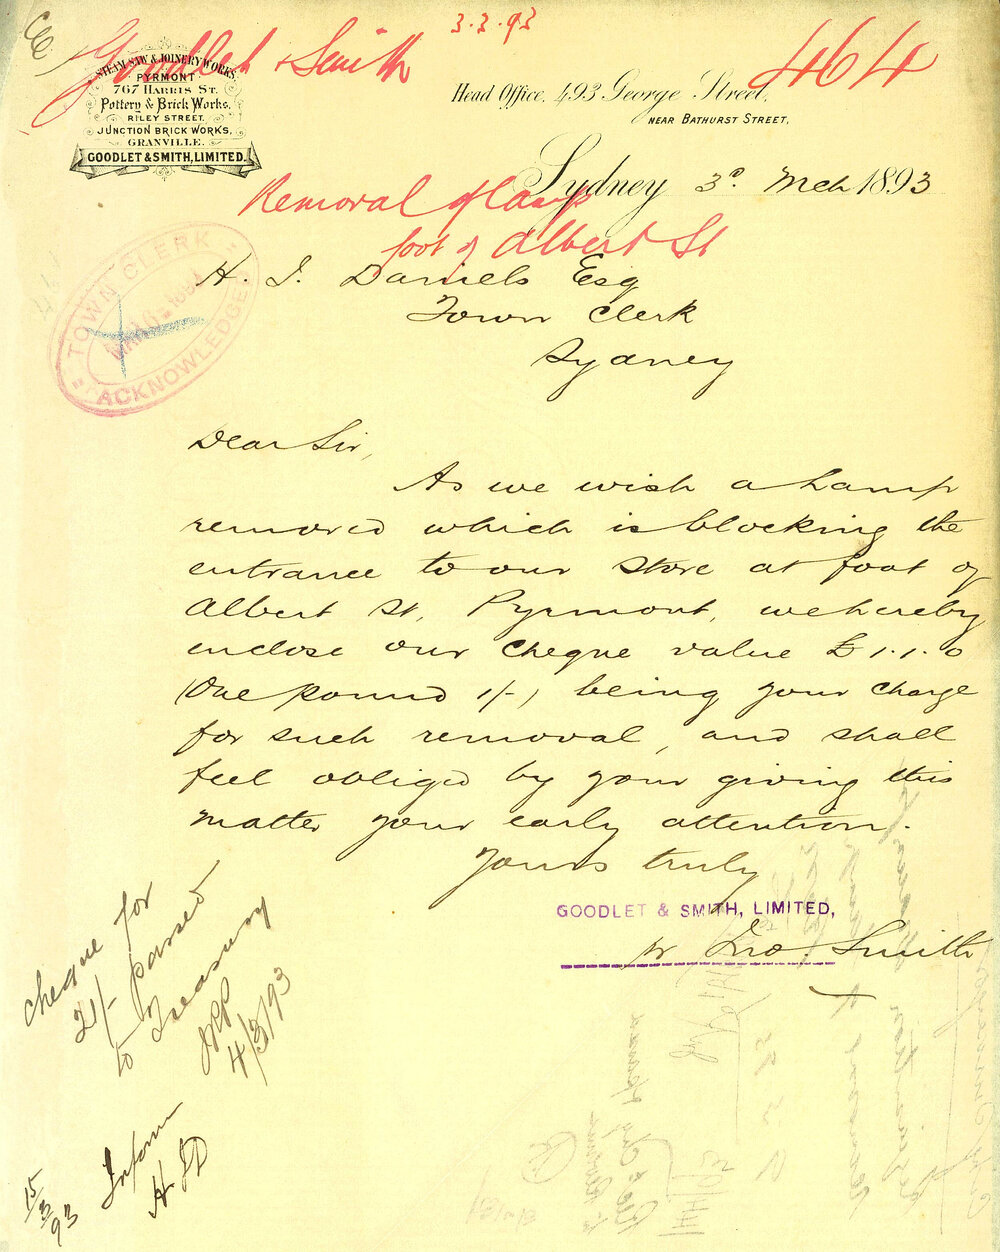 3.3.93
Goodlet & Smith
464
STEAM SAW & JOINERY WORKS,
PYRMONT
767 HARRIS ST.
Pottery & Brick Works,
RILEY STREET.
JUNCTION BRICK WORKS,
GRANVILLE.
GOODLET & SMITH, LIMITED.
Head Office, 493 George Street,
NEAR BATHURST STREET,
Sydney 3d. Mch 1893
Removal of Lamp
foot of Albert St
TOWN CLERK
ACKNOWLEDGED
H. J. Daniels Esq
Town Clerk
Sydney
Dear Sir,
As we wish a Lamp
removed which is blocking the
entrance to our store at foot of
Albert St, Pyrmont, we hereby
enclose our cheque value £1.1.0
(One pound 1/-) being your charge
for such removal, and shall
feel obliged by your giving this
matter your early attention.
Yours truly
GOODLET & SMITH, LIMITED,
pr Jno. Smith
cheque for
21/- passed
to Treasury
4/3/93
Inform
H.J.D
15/3/93